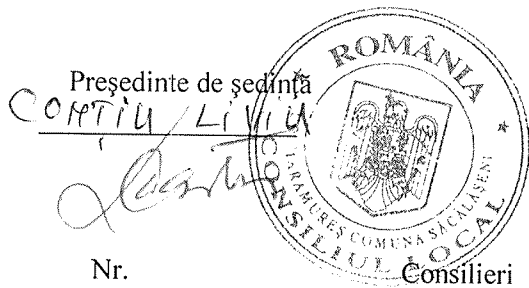 Președinte de ședință
COMȚIU LIVIU
ROMÂNIA
MARAMUREȘ COMUNA SĂCĂLĂȘENI
CONSILIUL LOCAL
Nr. Consilieri